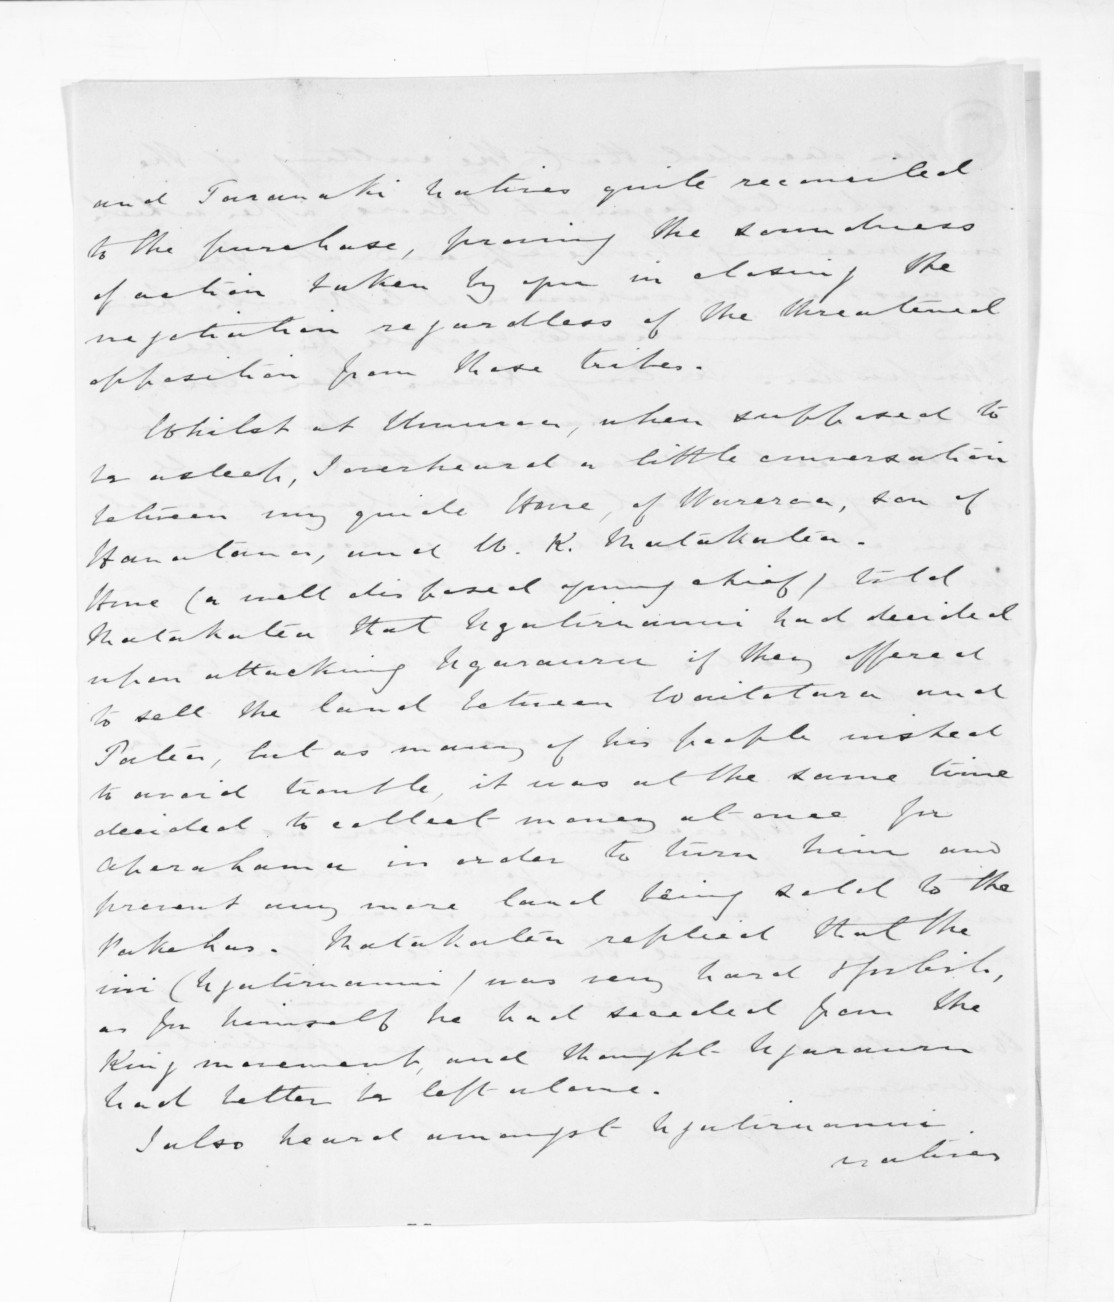 and Taranaki Natives quite reconciled
to the purchase, proving the soundness
of action taken by you in closing the
negotiation regardless of the threatened
opposition from those tribes.
Whilst at Umuroa, when supposed to
be asleep, I overheard a little conversation
between my guide Hone, of Wareroa, son of
Hanatana, and W. K. Matakatea.
Hone (a well disposed young chief) told
Matakatea that Ngatiruanui had decided
upon attacking Ngarauru if they offered
to sell the land between Waitotara and
Patea, but as many of his people wished
to avoid trouble, it was at the same time
decided to collect money at once for
Aperahama in order to turn him and
prevent any more land being sold to the
Pakehas. Matakatea replied that the
iwi (Ngatiruanui) was very hard & foolish,
as for himself he had seceded from the
King movement, and thought Ngarauru
had better be left alone.
I also heard amongst Ngatiruanui
natives